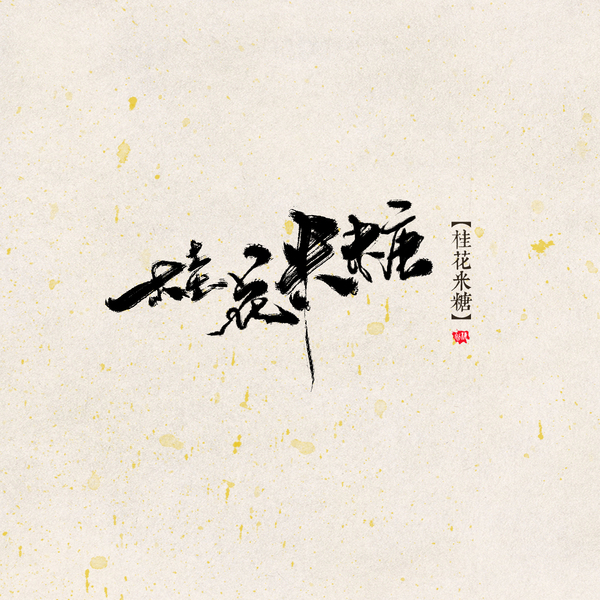 桂花米糖
【桂花米糖】